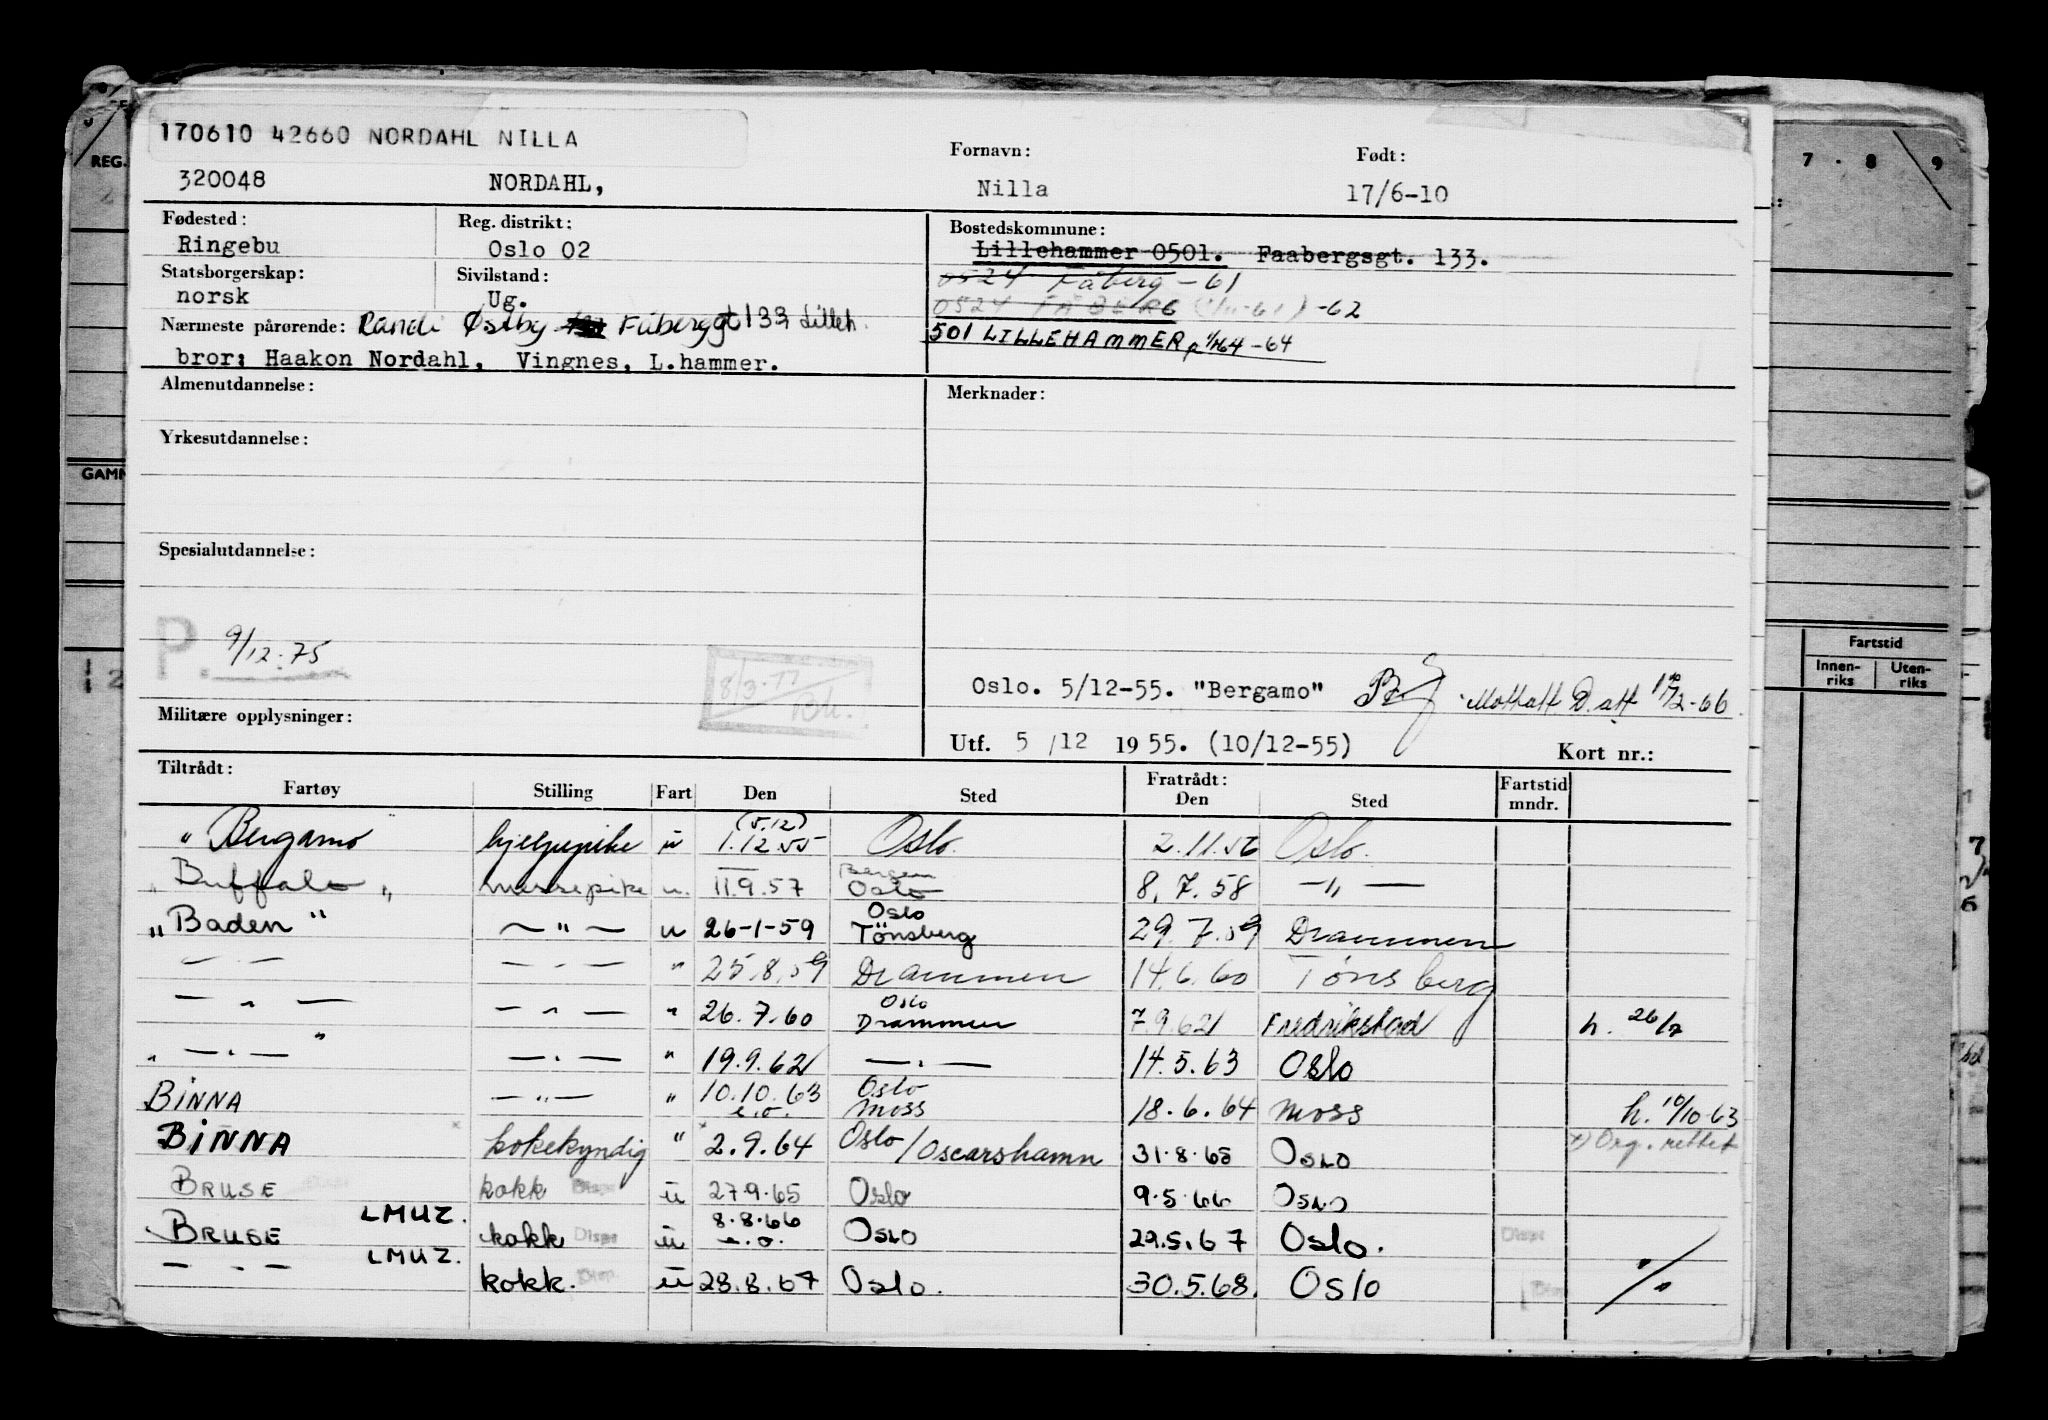 170610 42660 NORDAHL NILLA
320048 NORDAHL,
Fornavn: Født:
Nilla 17/6-10
Fødested: Reg. distrikt:
Ringebu Oslo 02
Statsborgerskap: Sivilstand:
norsk Ug.
Nærmeste pårørende: Randi Østby Fåberggt 133 Lilleh.
bror: Haakon Nordahl, Vingnes, L.hammer.
Bostedskommune:
Lillehammer 0501. Faabergsgt. 133.
0524 Fåberg -61
0524 FÅBERG -62
501 LILLEHAMMER -64
Almenutdannelse:
Yrkesutdannelse:
Spesialutdannelse:
P. 9/12.75
8/3.77
Militære opplysninger:
Merknader:
Oslo. 5/12-55. "Bergamo" Mottatt D. att -66
Utf. 5/12 1955. (10/12-55) Kort nr.:
Tiltrådt: Fratrådt:
Fartøy Stilling Fart Den Sted Den Sted Fartstid mndr.
(5.12)
"Bergamo" hjelpepike u 1.12.55 Oslo. 2.11.56 Oslo.
Bergen
"Buffalo" messepike u. 11.9.57 Oslo 8.7.58 —"—
Oslo
"Baden" —"— u 26-1-59 Tönsberg 29.7.59 Drammen
—"— —"— " 25.8.59 Drammen 14.6.60 Tønsberg
Oslo
—"— —"— " 26.7.60 Drammen 7.9.62 Fredrikstad h. 26/7
—"— —"— " 19.9.62 —"— 14.5.63 Oslo
Oslo
BINNA —"— " 10.10.63 e.o. Moss 18.6.64 Moss h. 10/10-63
BINNA kokekyndig " 2.9.64 Oslo/Oscarshamn 31.8.65 OSLO x) Org. rettet
BRUSE kokk u 27.9.65 Oslo 9.5.66 OSLO
LMUZ.
BRUSE kokk Disp u 8.8.66 e.o. OSLO 22.5.67 Oslo. Disp
LMUZ.
—"— kokk. Disp. u 28.8.67 Oslo. 30.5.68. Oslo
REG.
GAMM
7 . 8 9
Fartstid
Innenriks Utenriks